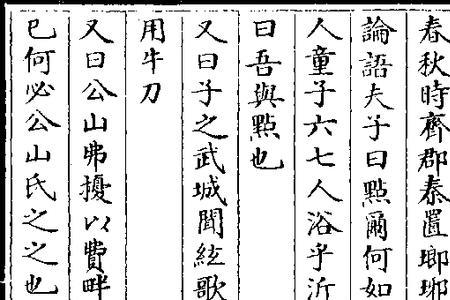 春秋時齊郡秦置瑯琊
論語夫子曰點爾何如
人童子六七人浴乎沂
曰吾與點也
又曰子之武城聞絃歌
用牛刀
又曰公山弗擾以費畔
已何必公山氏之之也